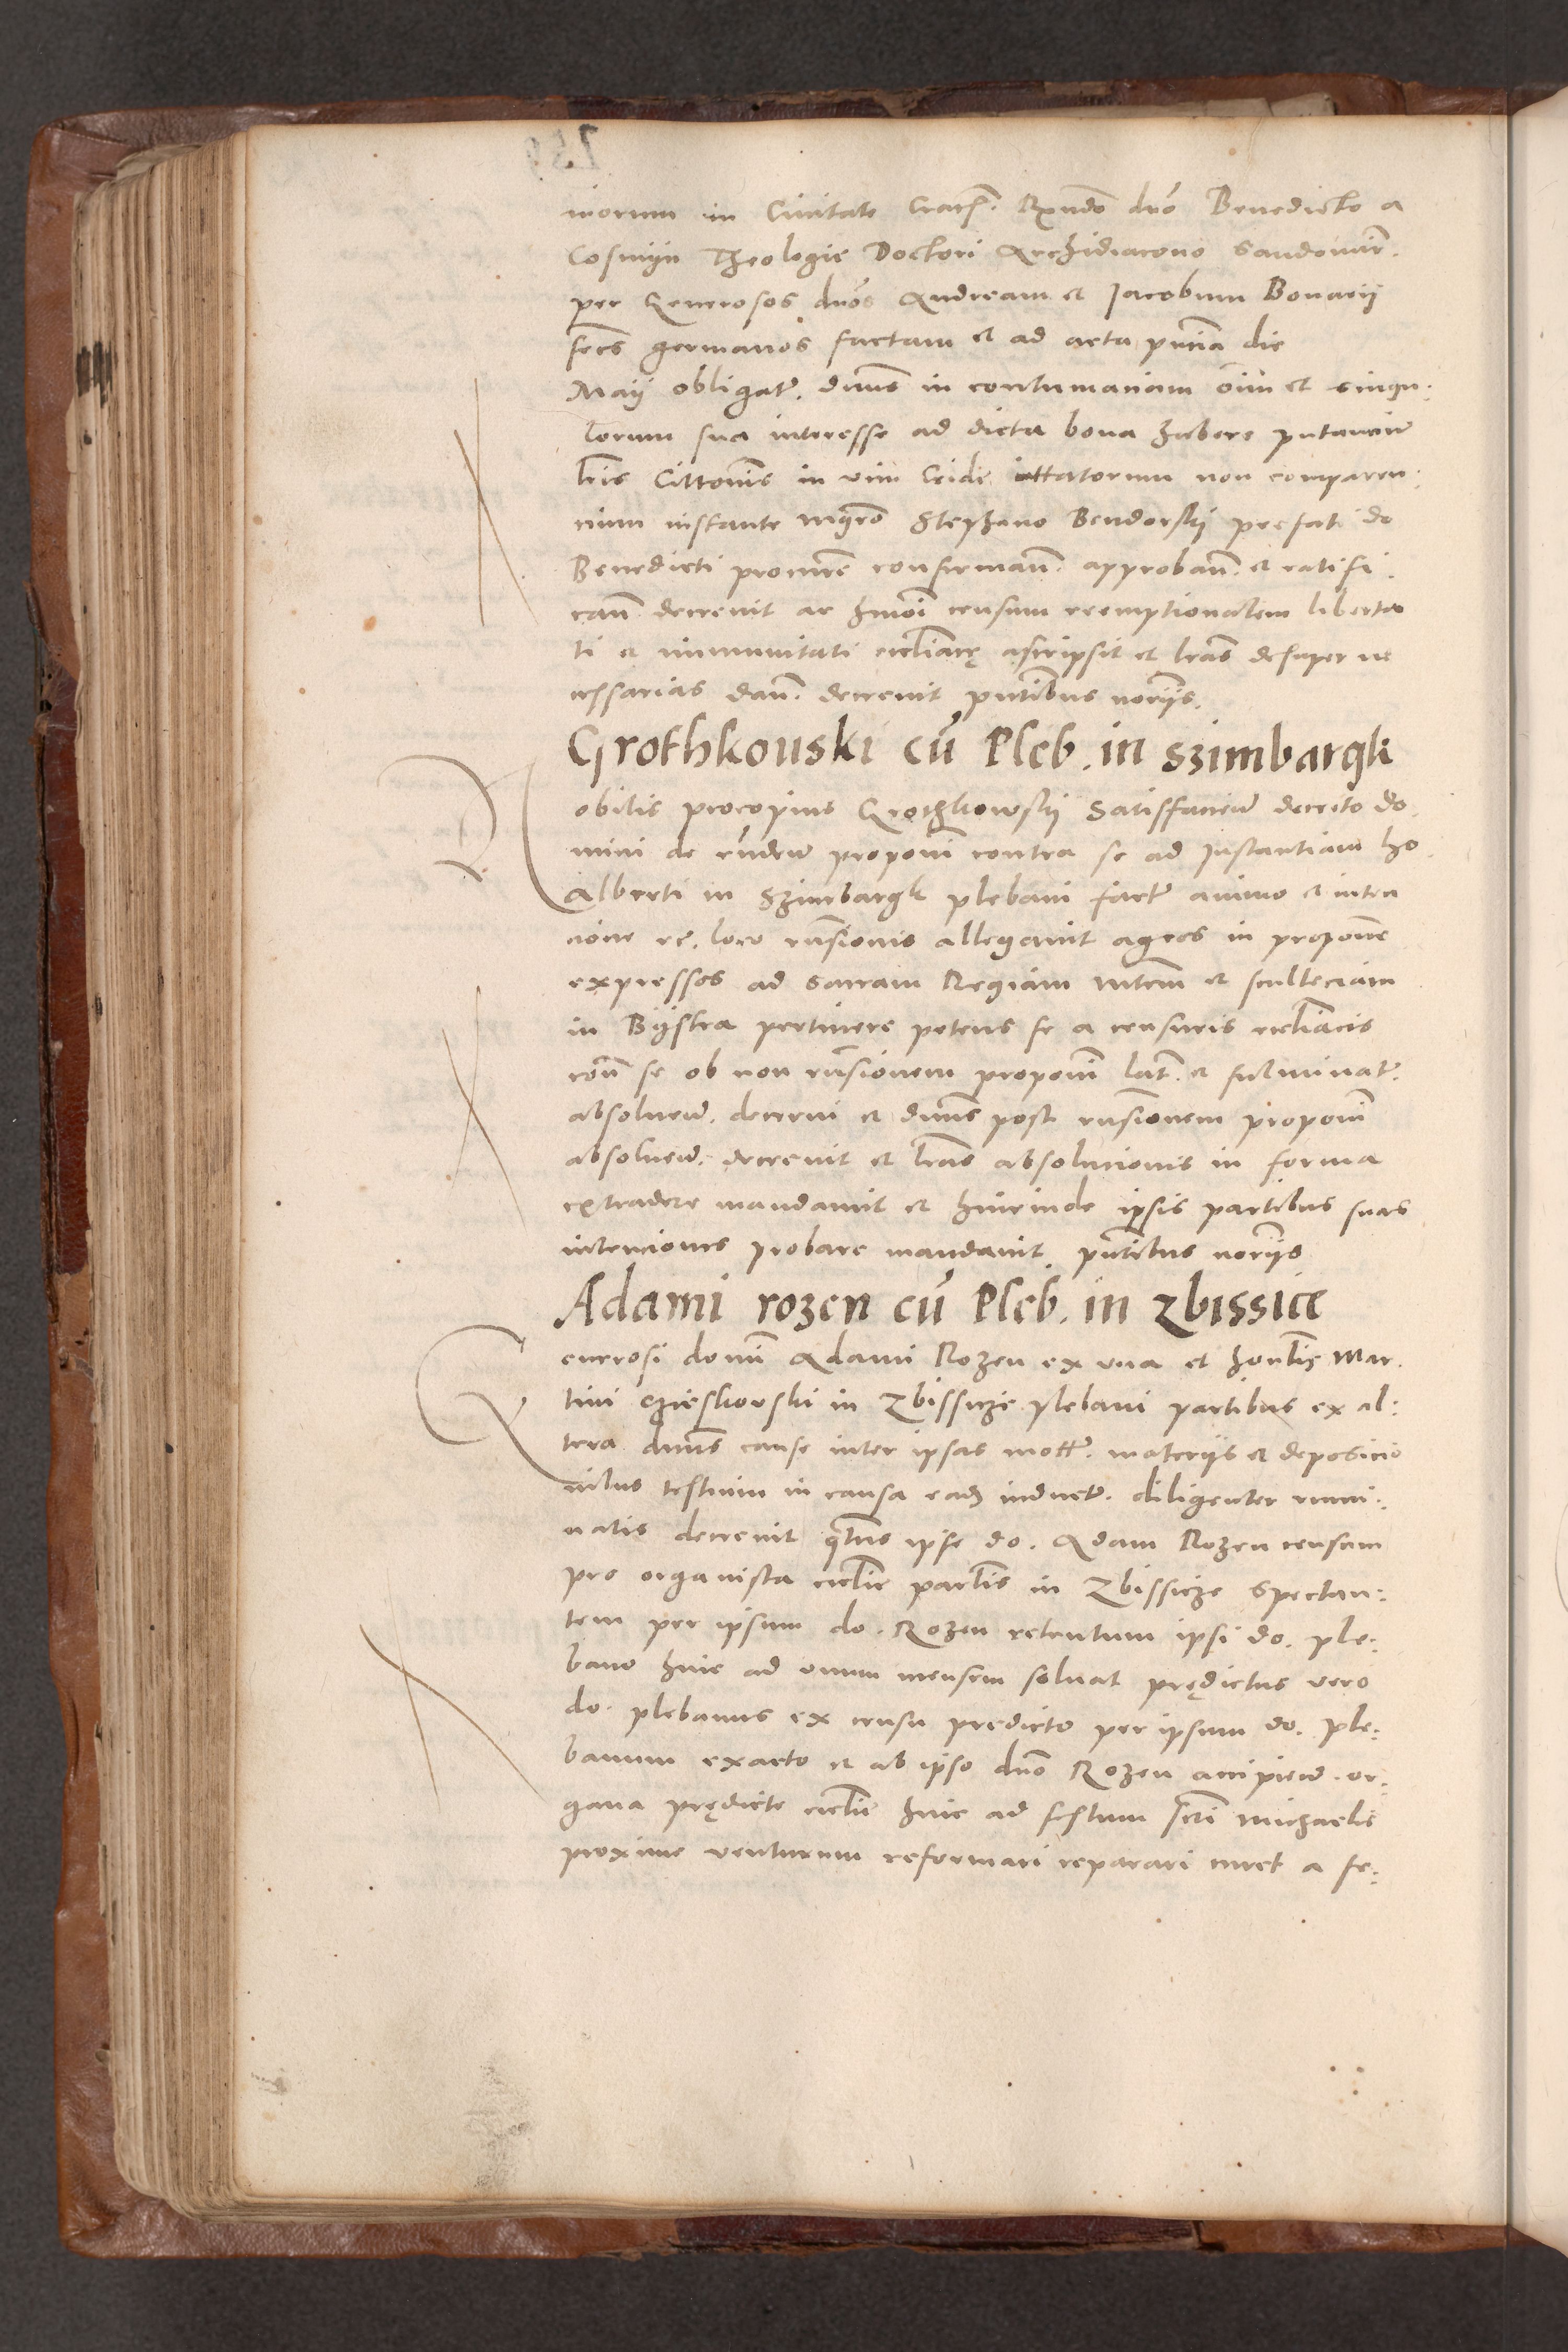 morum in Civitate Crac. Rndo dno Benedicto a
Cosmijn Theologie Doctori Archidiacono Sandomir.
per Generosos dnos Andream et Jacobum Bonarij
frēs germanos factam et ad acta pntia die
Maij obligat. Dnus in contumatiam oīm et singu:
lorum sua interesse ad dicta bona habere putancium
lris Cittonis in vim Ceide non comparen:
cium instante mgro Stephano Bendorskij prefati do
Benedicti procurē confirmañ. approbañ. et ratifi.
cañ decrevit ac hmōi censum reemptionalem liberta
ti et immunitati ecclīacę ascripsit et lrās desuper ne
cessarias dañ. decrevit pntibus norijs.
Grothkouski cū Pleb. in szimbargk
Nobilis procopius Grothkowskij Satisfaciens decreto do.
mini de rñdeñ proponi contra se ad Instantiam ho.
Alberti in Szimbargk plebani fact animo et inten
cione re. loco rñsionis allegavit agros in propone
expressos ad Sacram Regiam mtem et scultetiam
in Bijstra pertinere petens se a censuris eccliacis
coñ se ob non rñsionem proponi lat. et fulminat.
absolvend. decerni et dnus post rñsionem proponi
absolvend. decrevit et lrās absolucionis in forma
extradere mandavit et hincinde ipsis partibus suas
intenciones probare mandavit. pntibus norijs
Adami rozen cū Pleb. in zbissice
Generosi domi Adami Rozen ex una et honblis Mar.
tini czieskovski in Zbissicze plebani partibus ex al:
tera dnus cause inter ipsas mott. materijs et deposicio
nibus testium in causa eadz induct. diligenter rumi:
natis decrevit qtnus ipse do. Adam Rozen censum
pro organista ecclie parlis in Zbissicze spectan:
tem per ipsum do. Rozen retentum ipsi do. ple:
bano hinc ad unum mensem solvat prędictus vero
do. plebanus ex censu predicto per ipsum do. ple:
banum exacto et ab ipso dno Rozen accipiend. or:
gana prędicte ecclie hinc ad festum scti Michaelis
proxime venturum reformari reparari curet a fe: